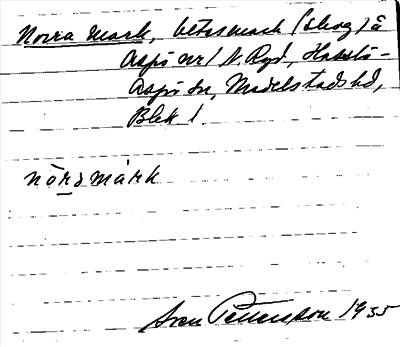 Norra mark, betesmark (skog) å
Aspö nr 1 N. Ryd, Hasslö-
Aspö sn, Medelstads hd,
Blek 1.
nòramárk
Sven Pettersson 1935